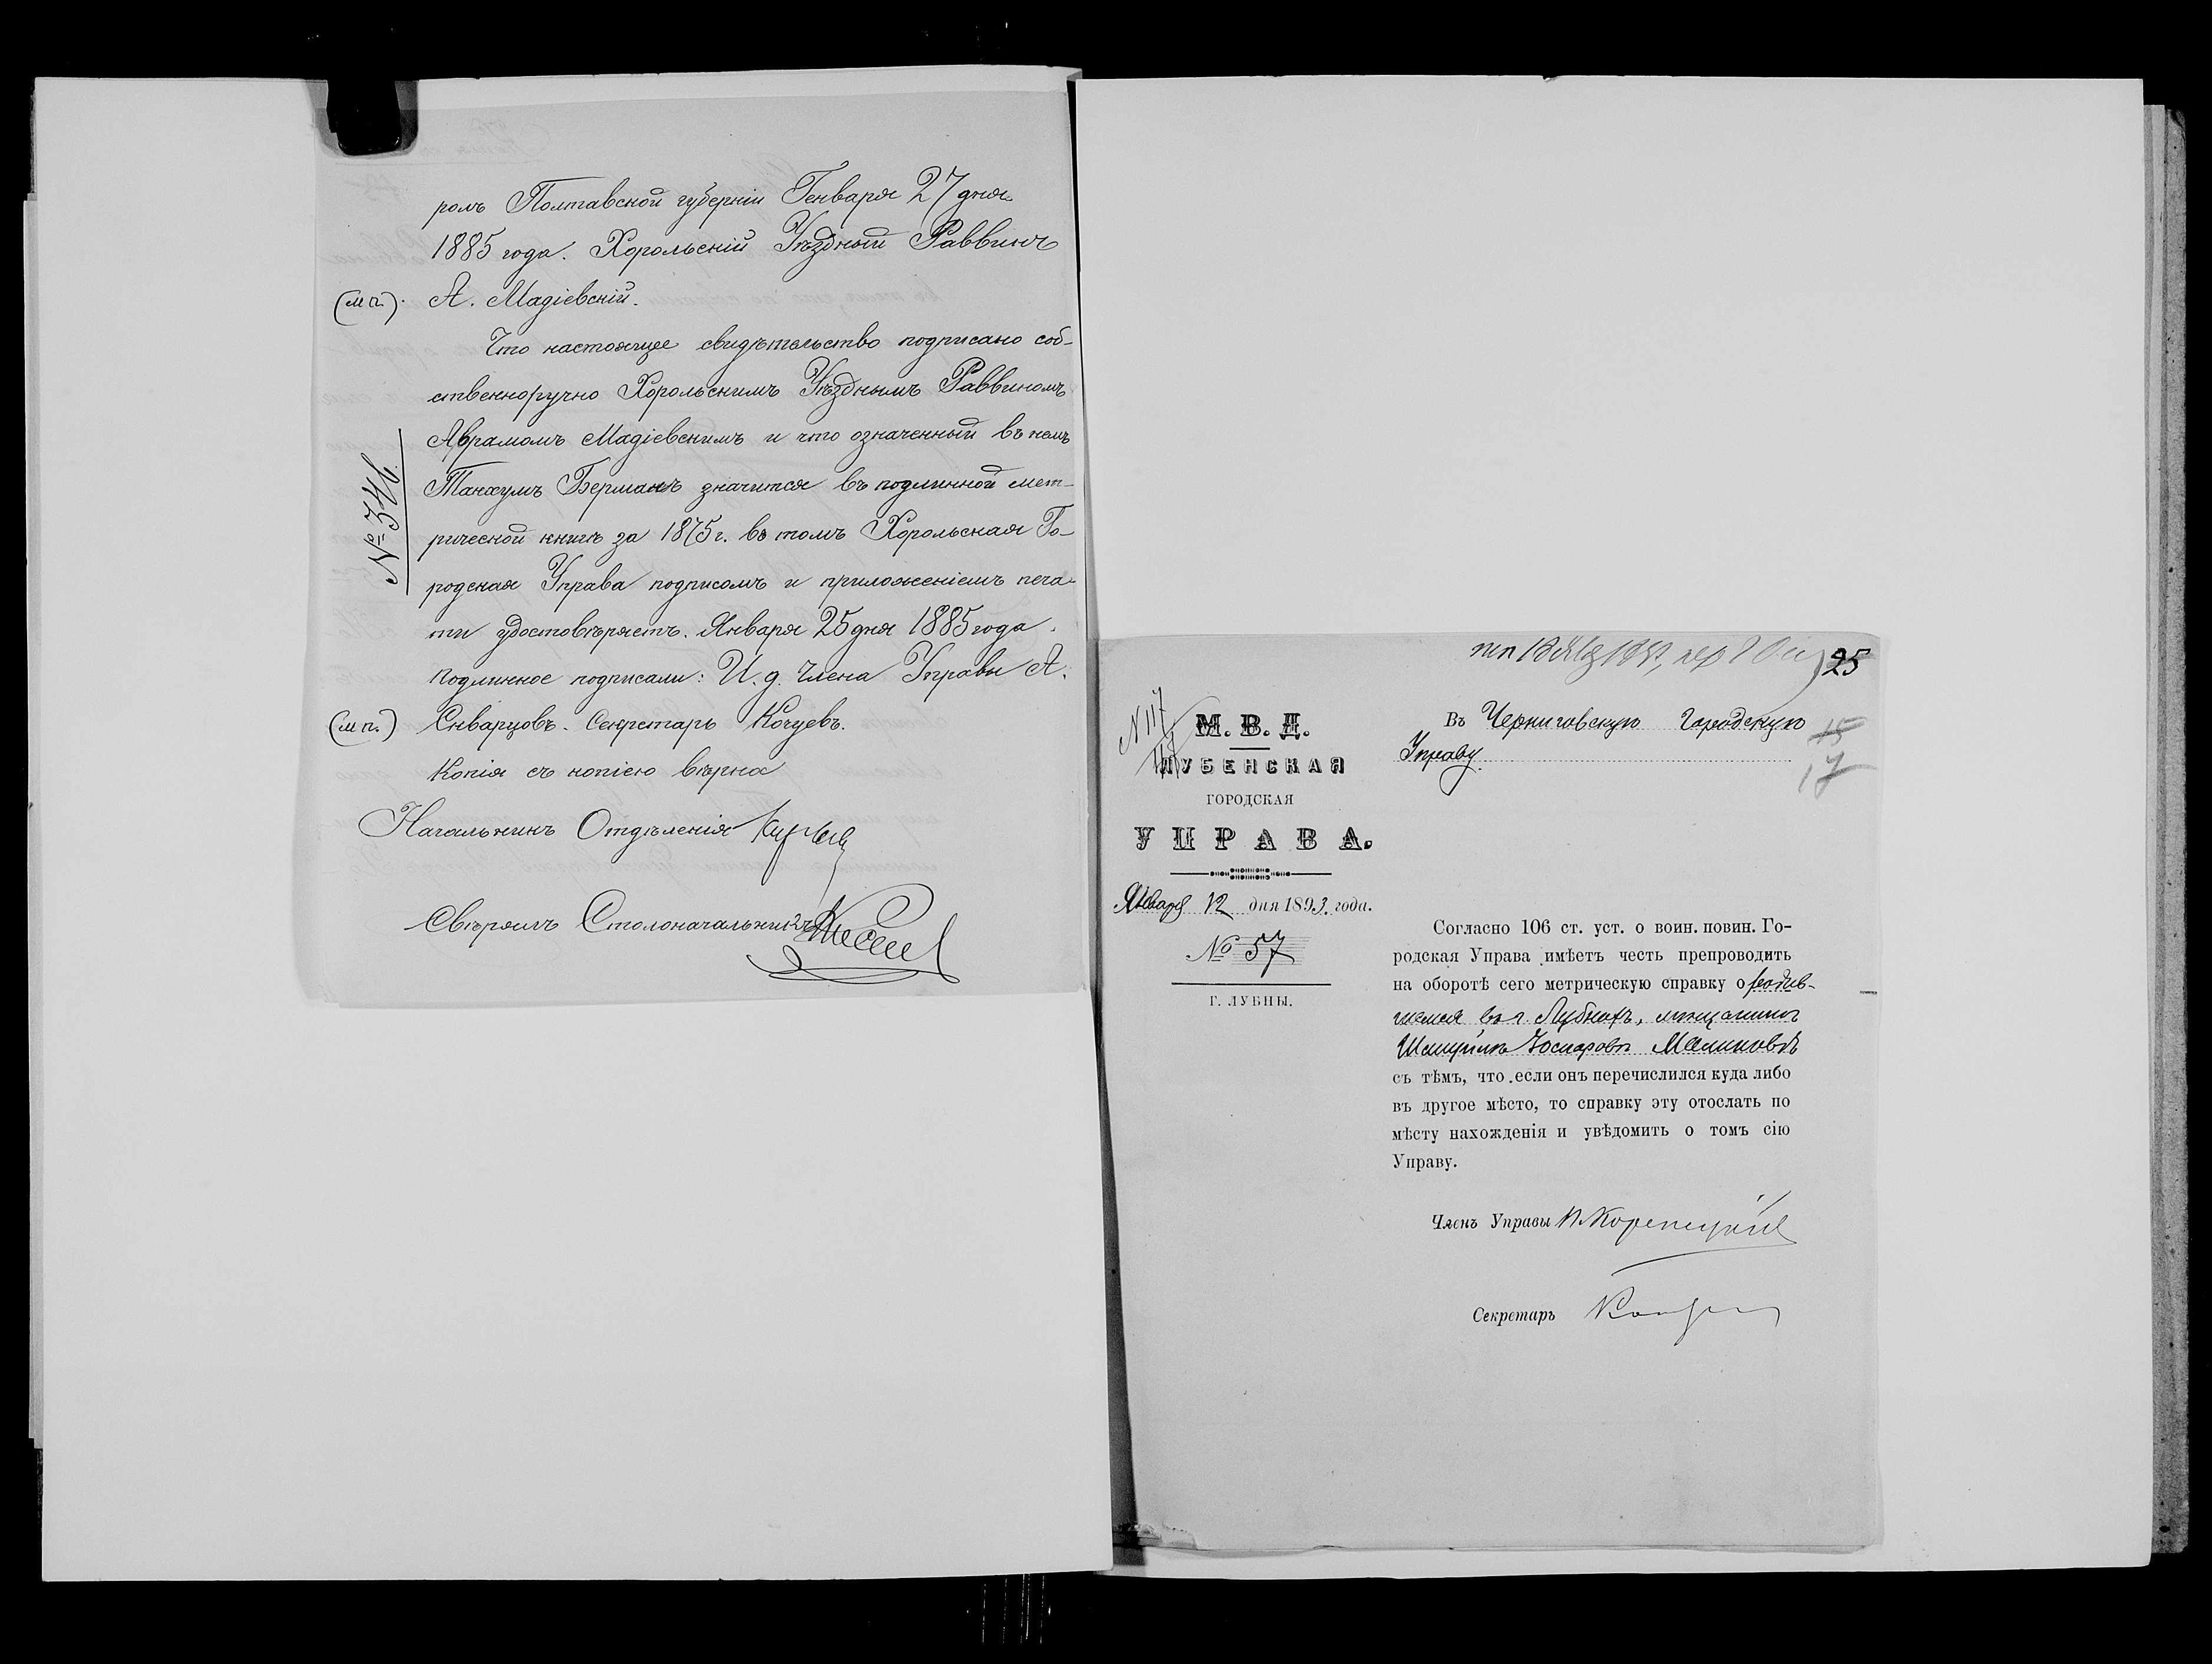 ромъ Полтавской губерніи Генваря 27 дня
1885 года. Хорольскій Уѣздный Раввинъ
(м п.) А. Мадіевскій.
Что настоящее свидѣтельство подписано соб-
ственноручно Хорольскимъ Уѣзднымъ Раввиномъ
Аврамомъ Мадіевскимъ и что означенный въ немъ
Танхумъ Берманъ значится въ подлинной мет-
рической книгѣ за 1875 г. въ томъ Хорольская Го-
родская Управа подписомъ и приложеніемъ печа-
ти удостовѣряетъ. Января 25 дня 1885 года.
№ 346.
Подлинное подписали: И. д. Члена Управы А.
(м п.) Скварцовъ. Секретарь Кочуевъ.
Копія съ копіею вѣрна
Начальникъ Отдѣленія
Свѣрялъ Столоначальникъ
25
N 117
М. В. Д.
ЛУБЕНСКАЯ
ГОРОДСКАЯ
УПРАВА.
Января 12 дня 1893 года.
№ 57
Г. ЛУБНЫ.
Въ Черниговскую Городскую
Управу.
15
17
Согласно 106 ст. уст. о воин. повин. Го-
родская Управа имѣетъ честь препроводить
на оборотѣ сего метрическую справку о родив-
шемся въ г. Лубнахъ, мѣщанинѣ
Шмуилѣ Маликовѣ
съ тѣмъ, что если онъ перечислился куда либо
въ другое мѣсто, то справку эту отослать по
мѣсту нахожденія и увѣдомить о томъ сію
Управу.
Членъ Управы
Секретарь